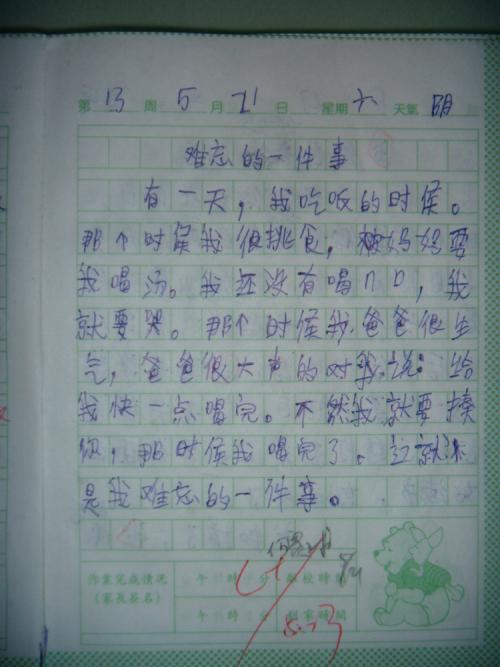 第13周5月21日 星期六 天氣 阴
难忘的一件事
有一天，我吃饭的时候。
那个时候我很挑食，被妈妈要
我喝汤。我还没有喝几口，我
就要哭。那个时候我爸爸很生
气，爸爸很大声的对我说：给
我快一点喝完。不然我就要揍
你，那时候我喝完了。这就
是我难忘的一件事。
作業完成情况
（家長簽名）
午 時 分 離校時間
午 時 分 到家時間